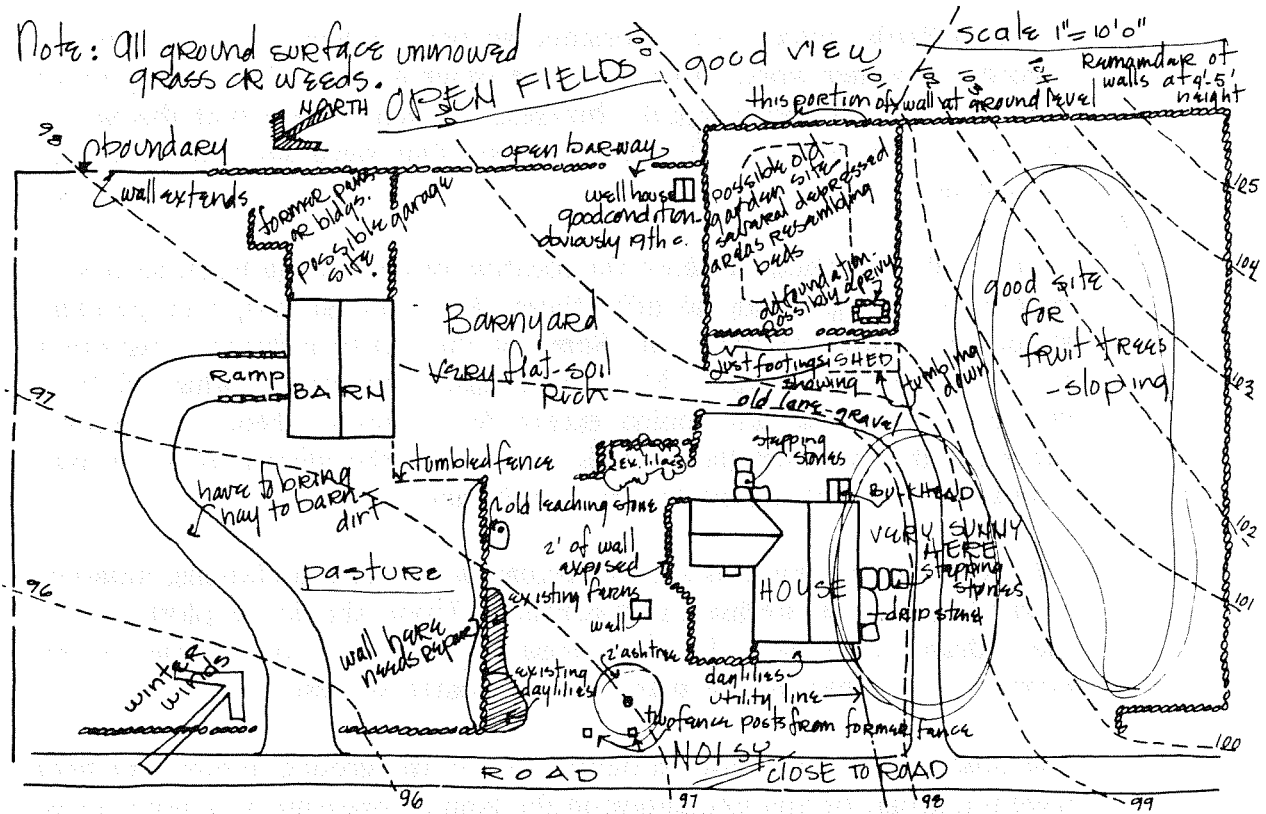 Note: All ground surface unmowed
grass or weeds.
NORTH
OPEN FIELDS
good view
scale 1"=10'0"
Remaindar of
walls at 4'-5'
height
this portion of wall at ground level
100
99
101
102
103
104
98
boundary
wall extends
open barway
former pens
or bldgs.
possible garage
site.
well house
good condition-
obviously 19th c.
possible old
garden site-
several depressed
areas resembling
beds
old foundation-
possibly a privy
105
104
103
102
101
100
good site
for
fruit trees
-sloping
Barnyard
very flat-soil
rich
Ramp
BARN
just footings
showing
SHED
tumbling
down
old lane-gravel
97
96
tumbled fence
ex. lilacs
stepping
stones
BULKHEAD
have to bring
hay to barn-
dirt
old leaching stone
2' of wall
exposed
VERY SUNNY
HERE
stepping
stones
HOUSE
drip stone
pasture
existing ferns
well
wall here
needs repair
2' ash tree
existing
daylilies
daylilies
utility line
two fence posts from former fence
WINTER
WINDS
NOISY
ROAD
CLOSE TO ROAD
96
97
98
99